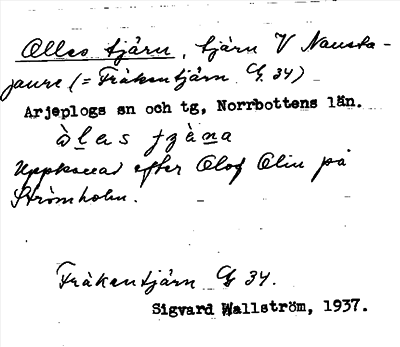 Olles tjärn, tjärn V Nausta-
jaure (= Fräkentjärn G 34)
Arjeplogs sn och tg, Norrbottens län.
Uppkallad efter Olof Olin på
Strömholm.
Fräkentjärn G 34.
Sigvard Wallström, 1937.